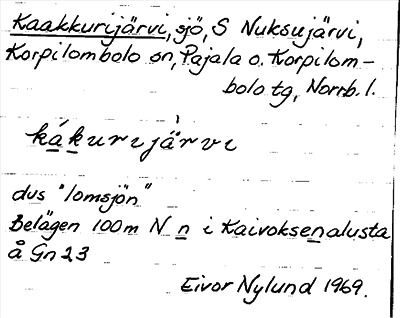 Kaakkurijärvi, sjö, S Nuksujärvi,
Korpilombolo sn, Pajala o. Korpilom-
bolo tg, Norrb. l.
kákurijä̀rvi
dvs "lomsjön"
Belägen 100m N n i Kaivoksenalusta
å Gn 23
Eivor Nylund 1969.